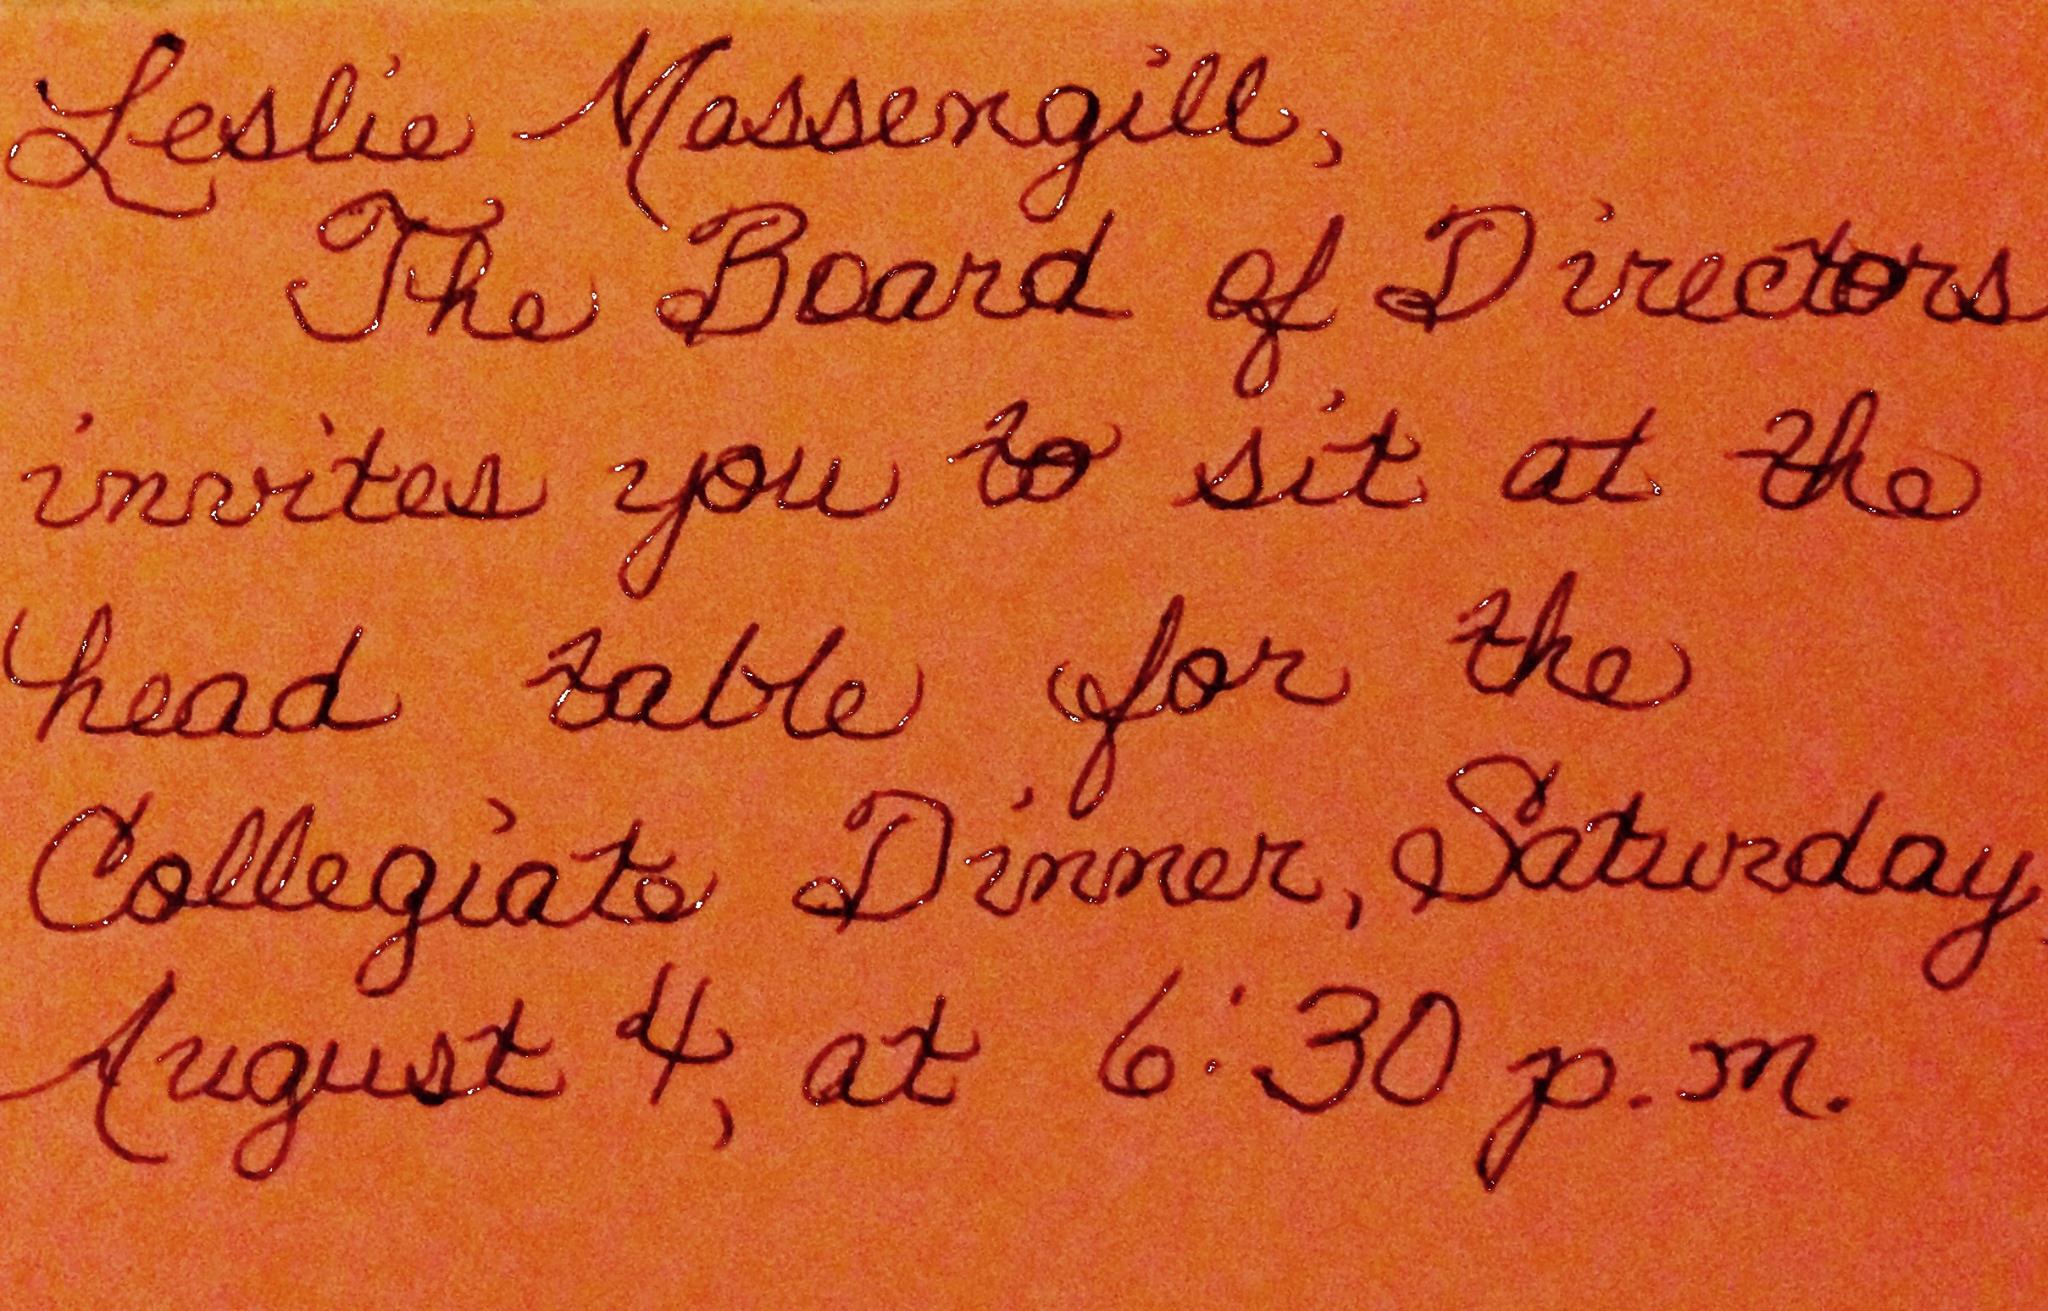 Leslie Massengill,
The Board of Directors
invites you to sit at the
head table for the
Collegiate Dinner, Saturday,
August 4, at 6:30 p.m.